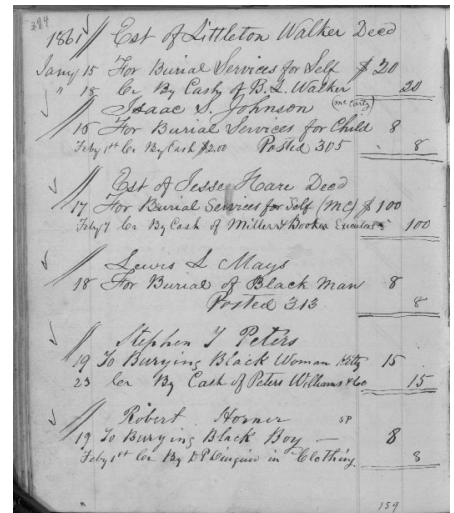 384
1861 // Est of Littleton Walker Decd
Jany 15 For Burial Services for Self $20
" 18 Cr By Cash of B. L. Walker 20
// Isaac S. Johnson (McCarty)
16 For Burial Services for Child 8
Feby 1st Cr By Cash $2.00 Posted 305 8
// Est of Jesse Hare Decd
17 For Burial Services for Self (MC) $100
Feby 7 Cr By Cash of Miller & Booker 100
// Lewis L Mays
18 For Burial of Black Man 8
Posted 313 8
// Stephen T Peters
19 To Burying Black Woman Kitty 15
23 Cr By Cash of Peters Williams & Co 15
// Robert Horner SP
19 To Burying Black Boy — 8
Feby 1st Cr By in Clothing 8
159